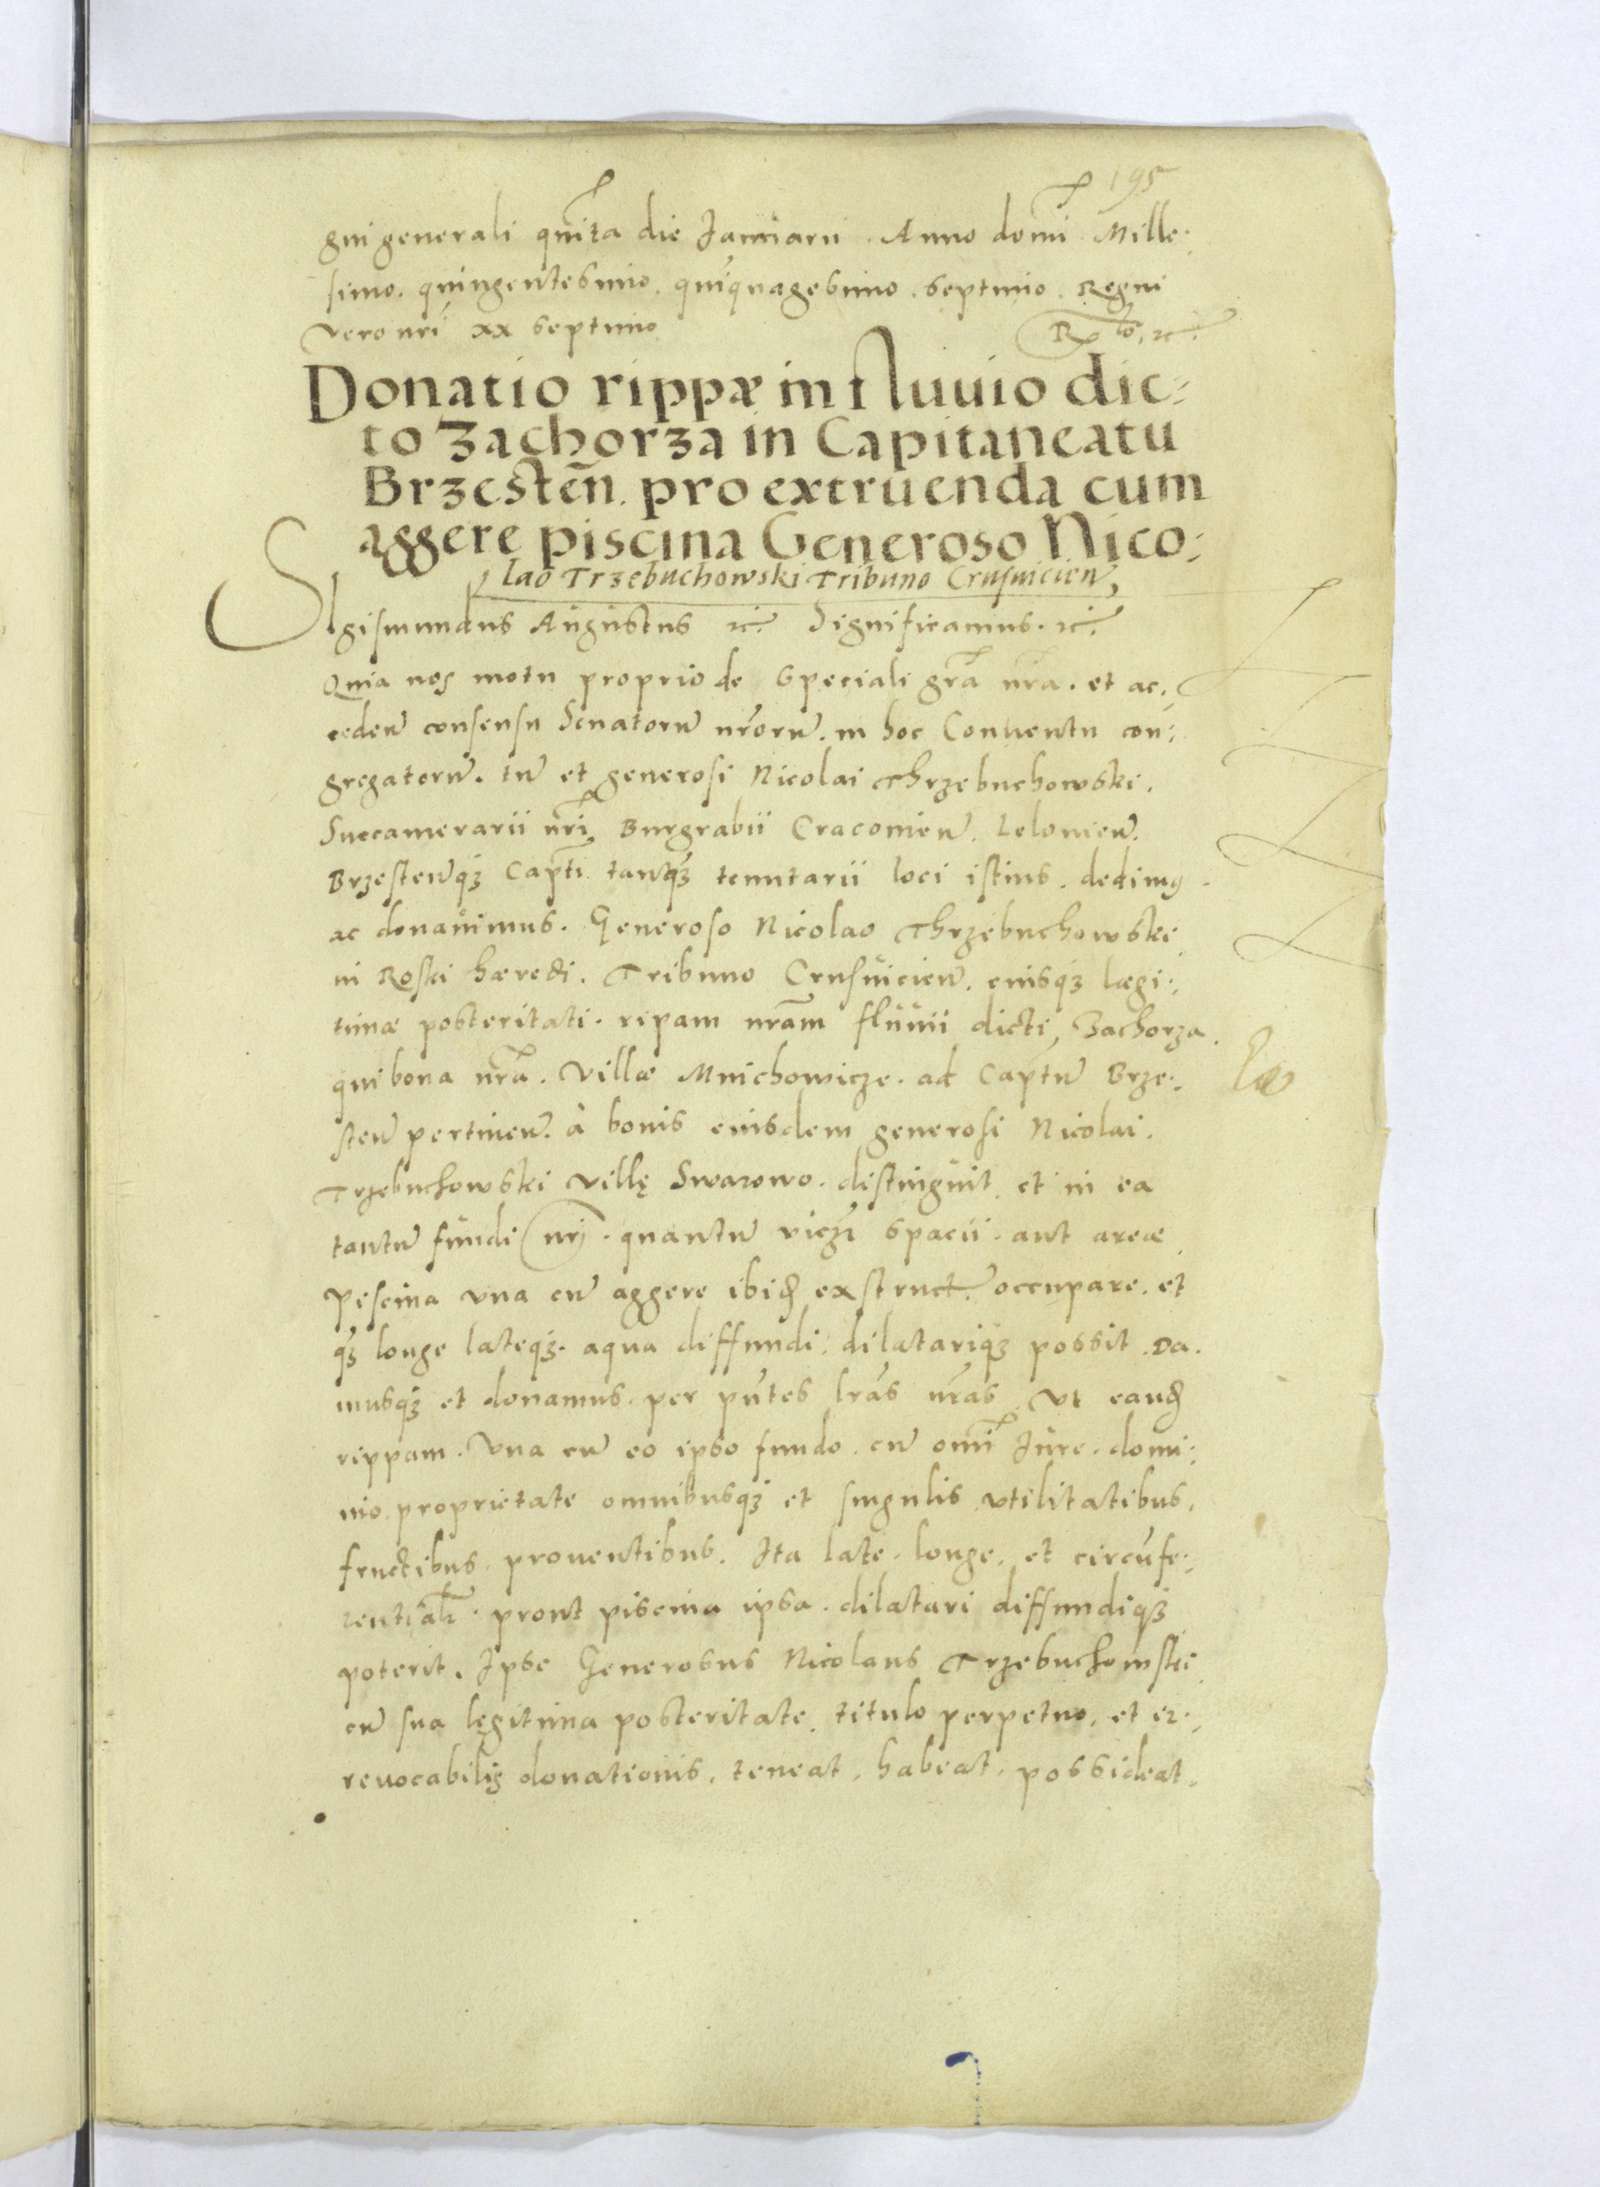 195
gni generali quīta die Januarii. Anno domī Mille:
simo. quingentesimo. quīquagesimo. septimo. Regni
vero nrī xx septimo R&lto;to &c.
Donatio rippæ in fluuio dic:
to Zachorza in Capitaneatu
Brzesten̄. pro extruenda cum
aggere piscina Generoso Nico:
lao Trzebuchowski Tribuno Crusuicien̄
Sigismundus Augustus &c. Significamus. &c.
Quia nos motu proprio de speciali grā nrā. et ac:
ceden̄ consensu Senatorū nrōrū. in hoc Conuentu con:
gregatorū. tū et generosi Nicolai Thrzebuchowski.
Succamerarii nrī Burgrabii Cracouien̄. Lelouien̄.
Brzesten̄q3 Capti. tanq3 tenutarii loci istius. dedimꝰ
ac donauimus. Generoso Nicolao Thrzebuchowski
in Roski hæredi. Tribuno Crusuicien̄. eiusq3 lægi:
timæ posteritati. ripam nrām fluuii dicti Zachorza.
qui bona nrā. villæ Mnichowicze. ad Captū Brze:
sten̄ pertinen̄. à bonis eiusdem generosi Nicolai.
Trzebuchowski villę Swarowo. distinguit et in ea
tantū fundi nrī. quantū vicz̄ spacii. aut areæ
piscina vna cū aggere ibid̄ exstruct. occupare. et
q3 longe lateq3. aqua diffundi. dilatariq3 possit. Da.
musq3 et donamus. per pn̄tes lrās nrās vt eand̄
rippam. vna cū eo ipso fundo. cū omī Jure. domi:
nio. proprietate omnibusq3 et singulis vtilitatibus.
fructibus. prouentibus. Ita late. longe. et circūfe:
rentialr̄. prout piscina ipsa. dilatari diffundiq3
poterit. Ipse Generosus Nicolaus Trzebuchowski
cū sua lęgitima posteritate. titulo perpetuo. et ir:
reuocabilis donationis. teneat. habeat. possideat.